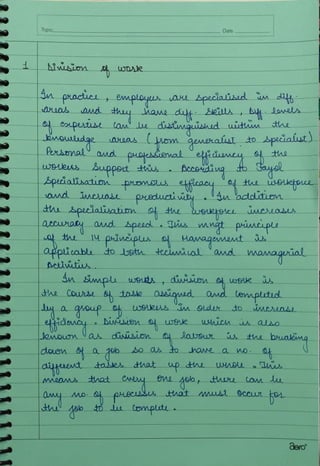 Topic
Date
1 Division of work
In practice, employees are specialised in diff.
areas and they have diff. skills, diff levels
of expertise can be distinguished within the
knowledge areas (from generalist to specialist)
Personal and professional efficiency of the
workers support this. According to Fayol
Specialisation promotes efficacy of the workforce
and increase productivity. In addition
the specialisation of the workforce increases
accuracy and speed. This mngt principle
of the 14 principles of Management is
applicable to both technical and managerial
activities.
In simple words, division of work is
the course of task assigned and completed
by a group of workers in order to increase
efficiency. Division of work which is also
known as division of labour is the breaking
down of a job so as to have a no. of
different tasks that up the whole. This
means that every one job, there can be
any no of processes that must occur for
the job to be complete.
aero